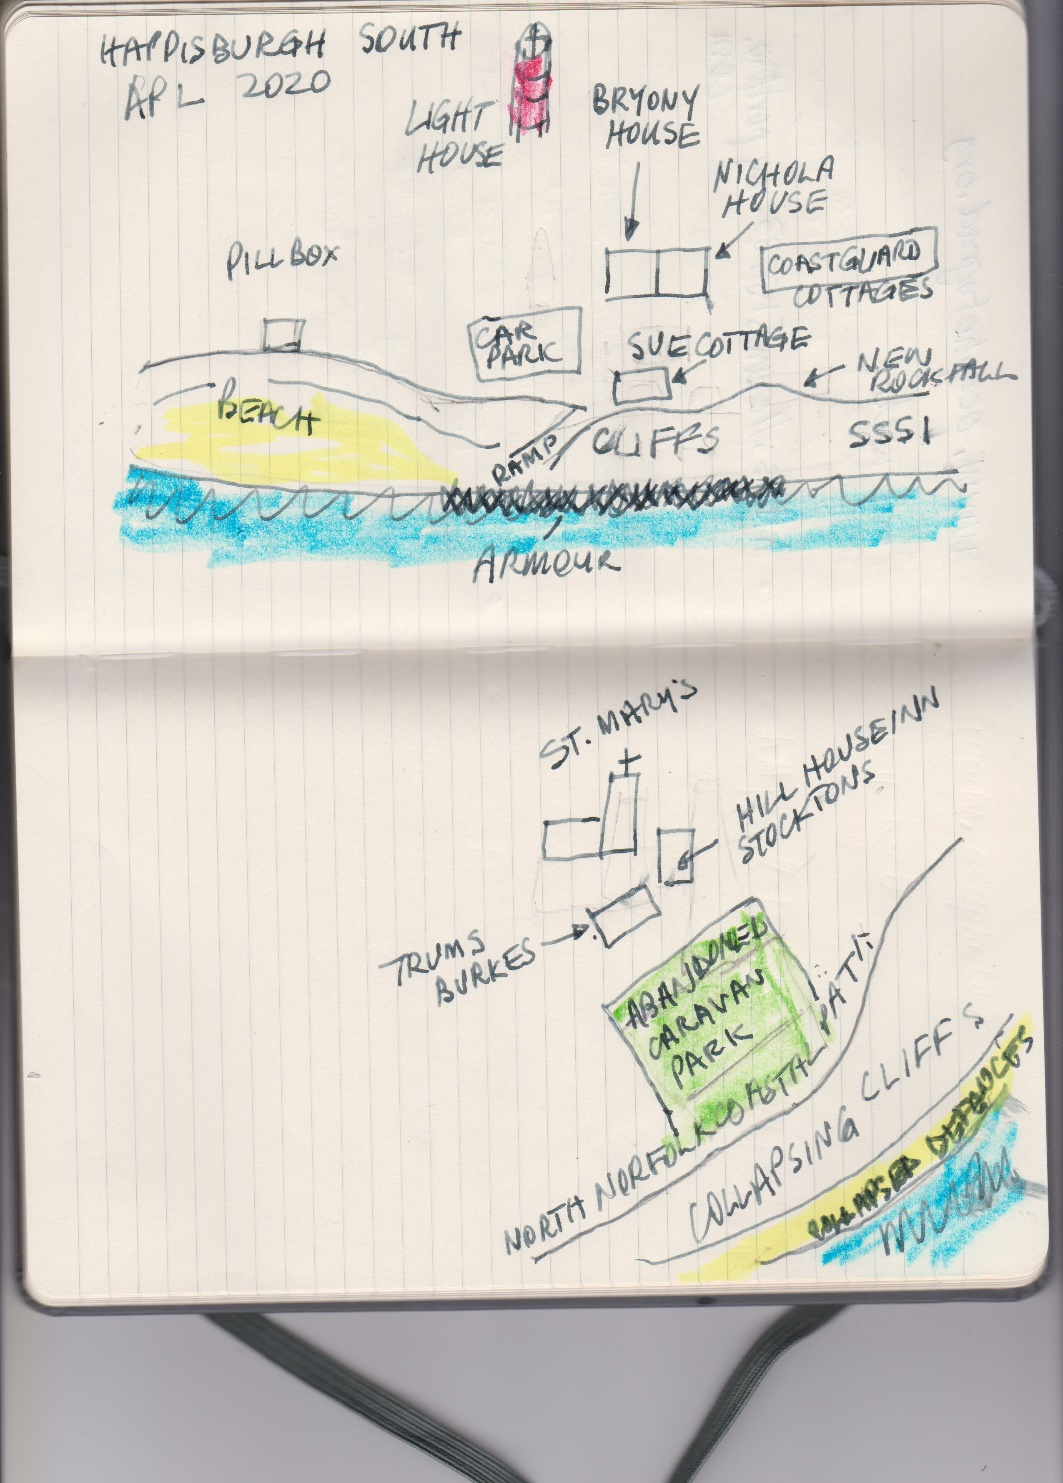 HAPPISBURGH SOUTH
APL 2020
LIGHT
HOUSE
BRYONY
HOUSE
NICHOLA
HOUSE
PILLBOX
COASTGUARD
COTTAGES
CAR
PARK
SUE COTTAGE
NEW
ROCKFALL
BEACH
RAMP
CLIFFS
SSSI
ARMOUR
ST. MARY'S
HILL HOUSE INN
STOCKTONS
TRUMS
BURKES
ABANDONED
CARAVAN
PARK
NORTH NORFOLK COASTAL PATH
COLLAPSING CLIFFS
COLLAPSED DEFENCES